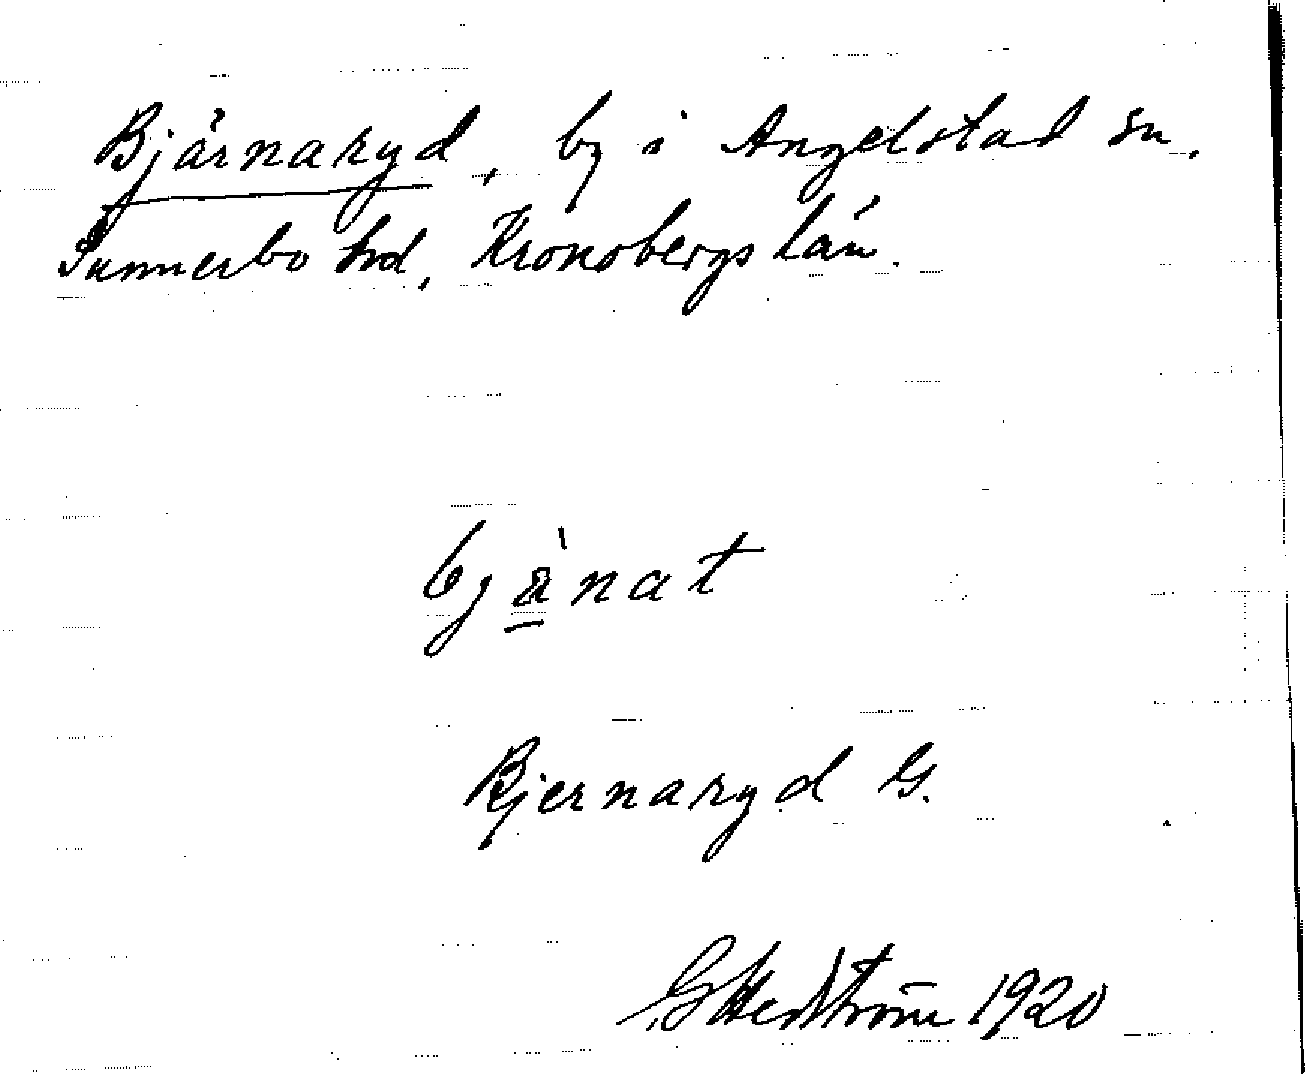 Bjärnaryd, by i Angelstad sn.
Sunnerbo hd, Kronobergs län.
bjä̀nat
Bjernaryd G.
G Hedström 1920